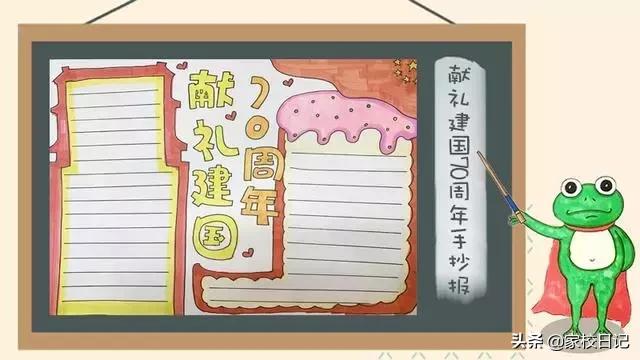 献礼建国
70周年
献礼建国70周年手抄报
头条 @家校日记